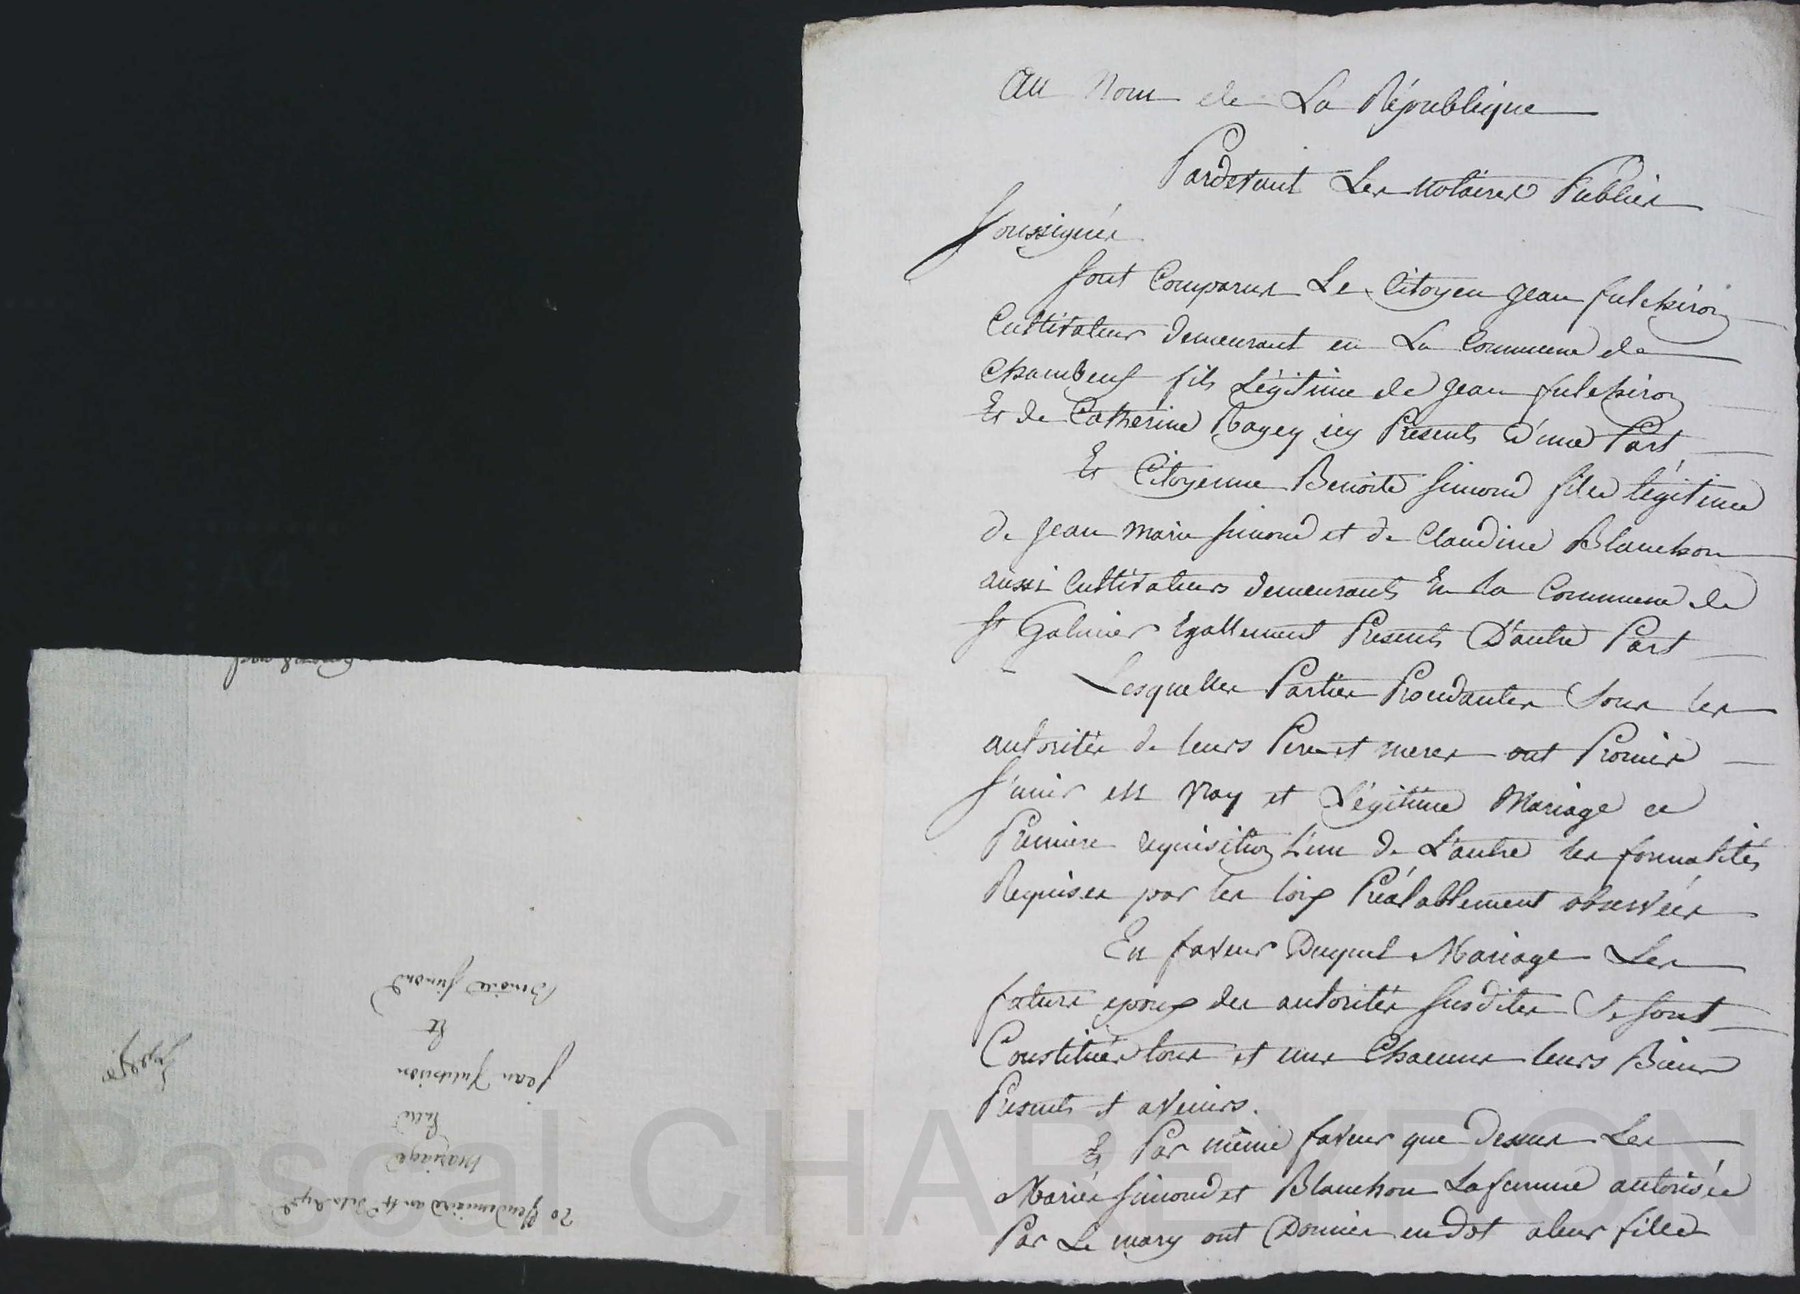 Au Nom de La République
Pardevant Les Notaires Publics
Soussignés
Sont Comparus Le Citoyen Jean fulchiron
Cultivateur demeurant en La Commune de
Chambeuf fils Légitime de Jean fulchiron
Et de Catherine Ragey icy Présents D'une Part
Et Citoyenne Benoite Simond fille légitime
de Jean Marie Simond et de Claudine Blanchon
aussi Cultivateurs demeurants En La Commune de
St Galmier Egallement Présents D'autre Part
Lesquelles Parties Procédantes Sous les
autorités de leurs Pere et meres ont Promis
S'unir en vray et Légitime Mariage a
Premiere requisition L'un de L'autre les formalités
Requises par les loix Préalablement observées
En faveur Duquel Mariage Les
futurs epoux des autorités Susdites Se sont
Constitués tous et uns Chacuns leurs Biens
Présents et avenirs.
Et Par même faveur que dessus Les
Mariés Simond et Blanchon La femme autorisée
Par Le mary ont Donnés en dot a leur fille
20 Vendemiaire an 4e
Mariage
Entre
Jean fulchiron
Et
Benoite Simond
Pascal CHAREYRON